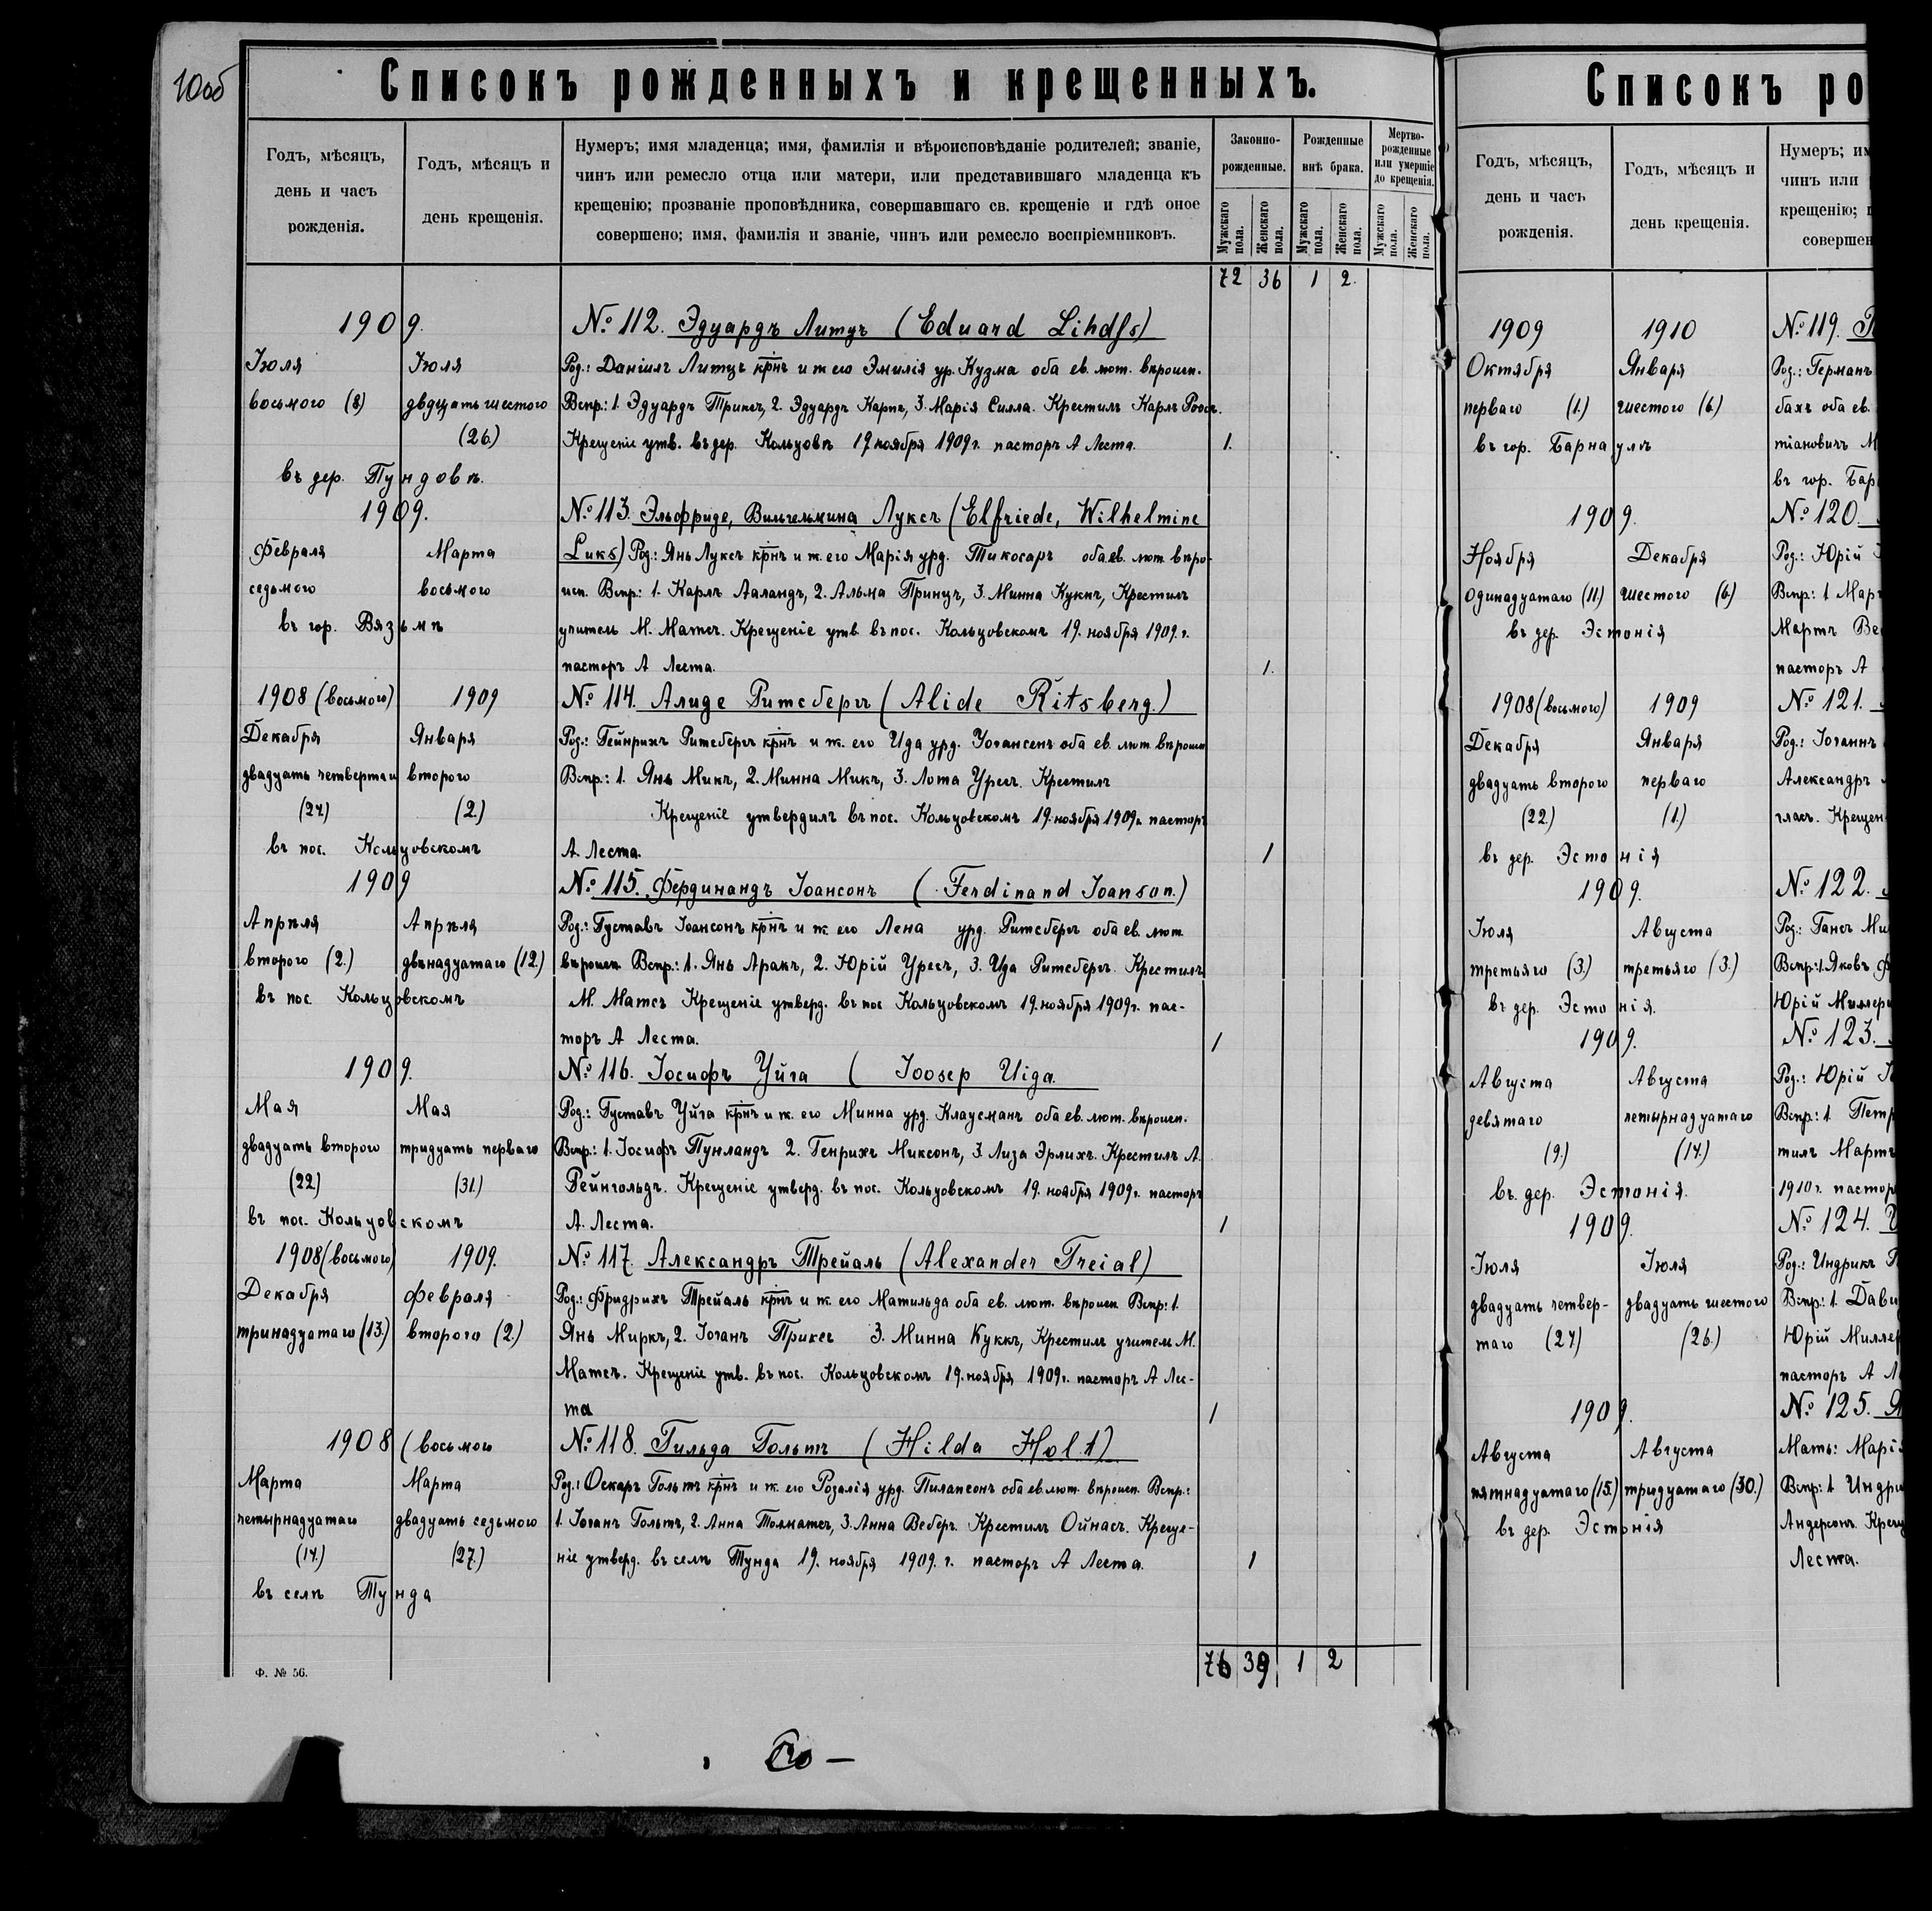 10об
Списокъ рожденныхъ и крещенныхъ.
Годъ, мѣсяцъ, день и часъ рожденія.
Годъ, мѣсяцъ и день крещенія.
Нумеръ; имя младенца; имя, фамилія и вѣроисповѣданіе родителей; званіе,
чинъ или ремесло отца или матери, или представившаго младенца къ
крещенію; прозваніе проповѣдника, совершавшаго св. крещеніе и гдѣ оное
совершено; имя, фамилія и званіе, чинъ или ремесло воспріемниковъ.
Законно-рожденные.
Рожденные внѣ брака.
Мертво-рожденные или умершіе до крещенія.
Мужскаго пола.
Женскаго пола.
Мужскаго пола.
Женскаго пола.
Мужскаго пола.
Женскаго пола.
72 36 1 2.
1909.
Іюля
восьмого (8)
Іюля
двдцать шестого
(26.)
въ дер. Тундовѣ.
№ 112. Эдуардъ Литцъ (Eduard
Род.: Даніилъ Литцъ крнъ и ж его Эмилія ур. Кузма оба ев. лют. вѣроисп.
Вспр.: 1. Эдуардъ Приксъ, 2. Эдуардъ Карпъ, 3. Марія Силла. Крестилъ Карлъ Роосъ.
Крещеніе утв. въ дер. Кольцовѣ 19 ноября 1909 г. пасторъ А Леста.
1.
1909.
Февраля
седьмого
Марта
восьмого
въ гор. Вязьмѣ
№ 113. Эльфриде, Вильгельмина Луксъ (Elfriede, Wilhelmine
Luks) Род.: Янъ Луксъ крнъ и ж. его Марія урд. Тикосаръ оба ев. лют. вѣро-
исп. Вспр: 1. Карлъ Ааландъ, 2. Альма Принцъ, 3. Минна Куккъ, Крестилъ
учитель М. Матсъ. Крещеніе утв. въ пос. Кольцовскомъ 19. ноября 1909. г.
пасторъ А Леста.
1.
1908 (восьмого)
Декабря
двадцать четвертаго
(24)
1909
Января
второго
(2.)
въ пос. Кольцовскомъ
№ 114. Алиде Ритсбергъ (Alide Ritsberg.)
Род.: Гейнрихъ Ритсбергъ крнъ и ж. его Ида урд. Іогансенъ оба ев. лют. вѣроисп
Вспр.: 1. Янъ Микъ, 2. Минна Микъ, 3. Лота Уресъ. Крестилъ
Крещеніе утвердилъ въ пос. Кольцовскомъ 19. ноября 1909 г. пасторъ
А. Леста.
1
1909
Апрѣля
второго (2.)
Апрѣля
двѣнадцатаго (12.)
въ пос. Кольцовскомъ
№ 115. Фердинандъ Іоансонъ (Ferdinand Joanson.)
Род.: Густавъ Іоансонъ крнъ и ж его Лена урд. Ритсбергъ оба ев. лют.
вѣроисп. Вспр.: 1. Янъ Аракъ, 2. Юрій Уресъ, 3. Ида Ритсбергъ. Крестилъ
М. Матсъ Крещеніе утверд. въ пос Кольцовскомъ 19. ноября 1909 г. пас-
торъ А Леста.
1
1909.
Мая
двадцать второго
(22)
Мая
тридцать перваго
(31.)
въ пос. Кольцовскомъ
№ 116. Іосифъ Уйга (Joosep Uiga.
Род.: Густавъ Уйга крнъ и ж. его Минна урд. Клаусманъ оба ев. лют. вѣроисп.
Вспр.: 1. Іосифъ Пунландъ 2. Генрихъ Миксонъ, 3. Лиза Эрлихъ. Крестилъ А.
Рейнгольдъ. Крещеніе утверд. въ пос. Кольцовскомъ 19. ноября 1909 г. пасторъ
А. Леста.
1
1908 (восьмого)
Декабря
тринадцатаго (13.)
1909.
Февраля
второго (2.)
№ 117. Александръ Трейаль (Alexander Treial)
Род.: Фридрихъ Трейаль крнъ и ж. его Матильда оба ев. лют. вѣроисп. Вспр: 1.
Янъ Миркъ, 2. Іоганъ Приксъ 3. Минна Куккъ, Крестилъ учитель М.
Матсъ. Крещеніе утв. въ пос. Кольцовскомъ 19. ноября 1909 г. пасторъ А Лес-
та
1
1908 (восьмого
Марта
четырнадцатаго
(14.)
Марта
двадцать седьмого
(27.)
въ селѣ Тунда
№ 118. Гильда Гольтъ (Hilda Holt)
Род.: Оскаръ Гольтъ крнъ и ж. его Розалія урд. Пилансонъ оба ев. лют. вѣроисп. Вспр.:
1. Іоганъ Гольтъ, 2. Анна Толматсъ, 3. Анна Веберъ. Крестилъ Ойнасъ. Креще-
ніе утверд. въ селѣ Тунда 19. ноября 1909. г. пасторъ А Леста.
1
76 39 1 2
Ф. № 56.
Списокъ ро
Годъ, мѣсяцъ, день и часъ рожденія.
Годъ, мѣсяцъ и день крещенія.
Нумеръ; им
чинъ или
крещенію;
совершен
1909
Октября
перваго (1.)
1910
Января
шестого (6.)
въ гор. Барнаулѣ
№ 119.
Род.: Германъ
бахъ оба ев.
тіановичъ М
въ гор. Бар
1909.
Ноября
одинадцатаго (11.)
Декабря
шестого (6.)
въ дер. Эстонія
№ 120.
Род.: Юрій
Вспр: 1 Мар
Мартъ Ве
пасторъ А
1908 (восьмого)
Декабря
двадцать второго
(22.)
1909
Января
перваго
(1.)
въ дер. Эстонія
№ 121.
Род.: Іоганнъ
Александръ
гласъ. Крещен
1909.
Іюля
третьяго (3.)
Августа
третьяго (3.)
въ дер. Эстонія.
№ 122.
Род.: Гансъ Ми
Вспр: 1. Яковъ Ф
Юрій Миллеръ
1909.
Августа
девятаго
(9.)
Августа
четырнадцатаго
(14.)
въ. дер. Эстонія.
№ 123.
Род.: Юрій
Вспр.: 1. Петр
тилъ Мартъ
1910 г. пастор
1909.
Іюля
двадцать четвер-
таго (24)
Іюля
двадцать шестого
(26.)
№ 124.
Род.: Индрикъ
Вспр.: 1. Дави
Юрій Миллер
пасторъ А Л
1909.
Августа
пятнадцатаго (15.)
Августа
тридцатаго (30.)
въ дер. Эстонія
№ 125.
Мать: Марі
Вспр: 1. Индри
Андерсонъ. Крещ
Леста.